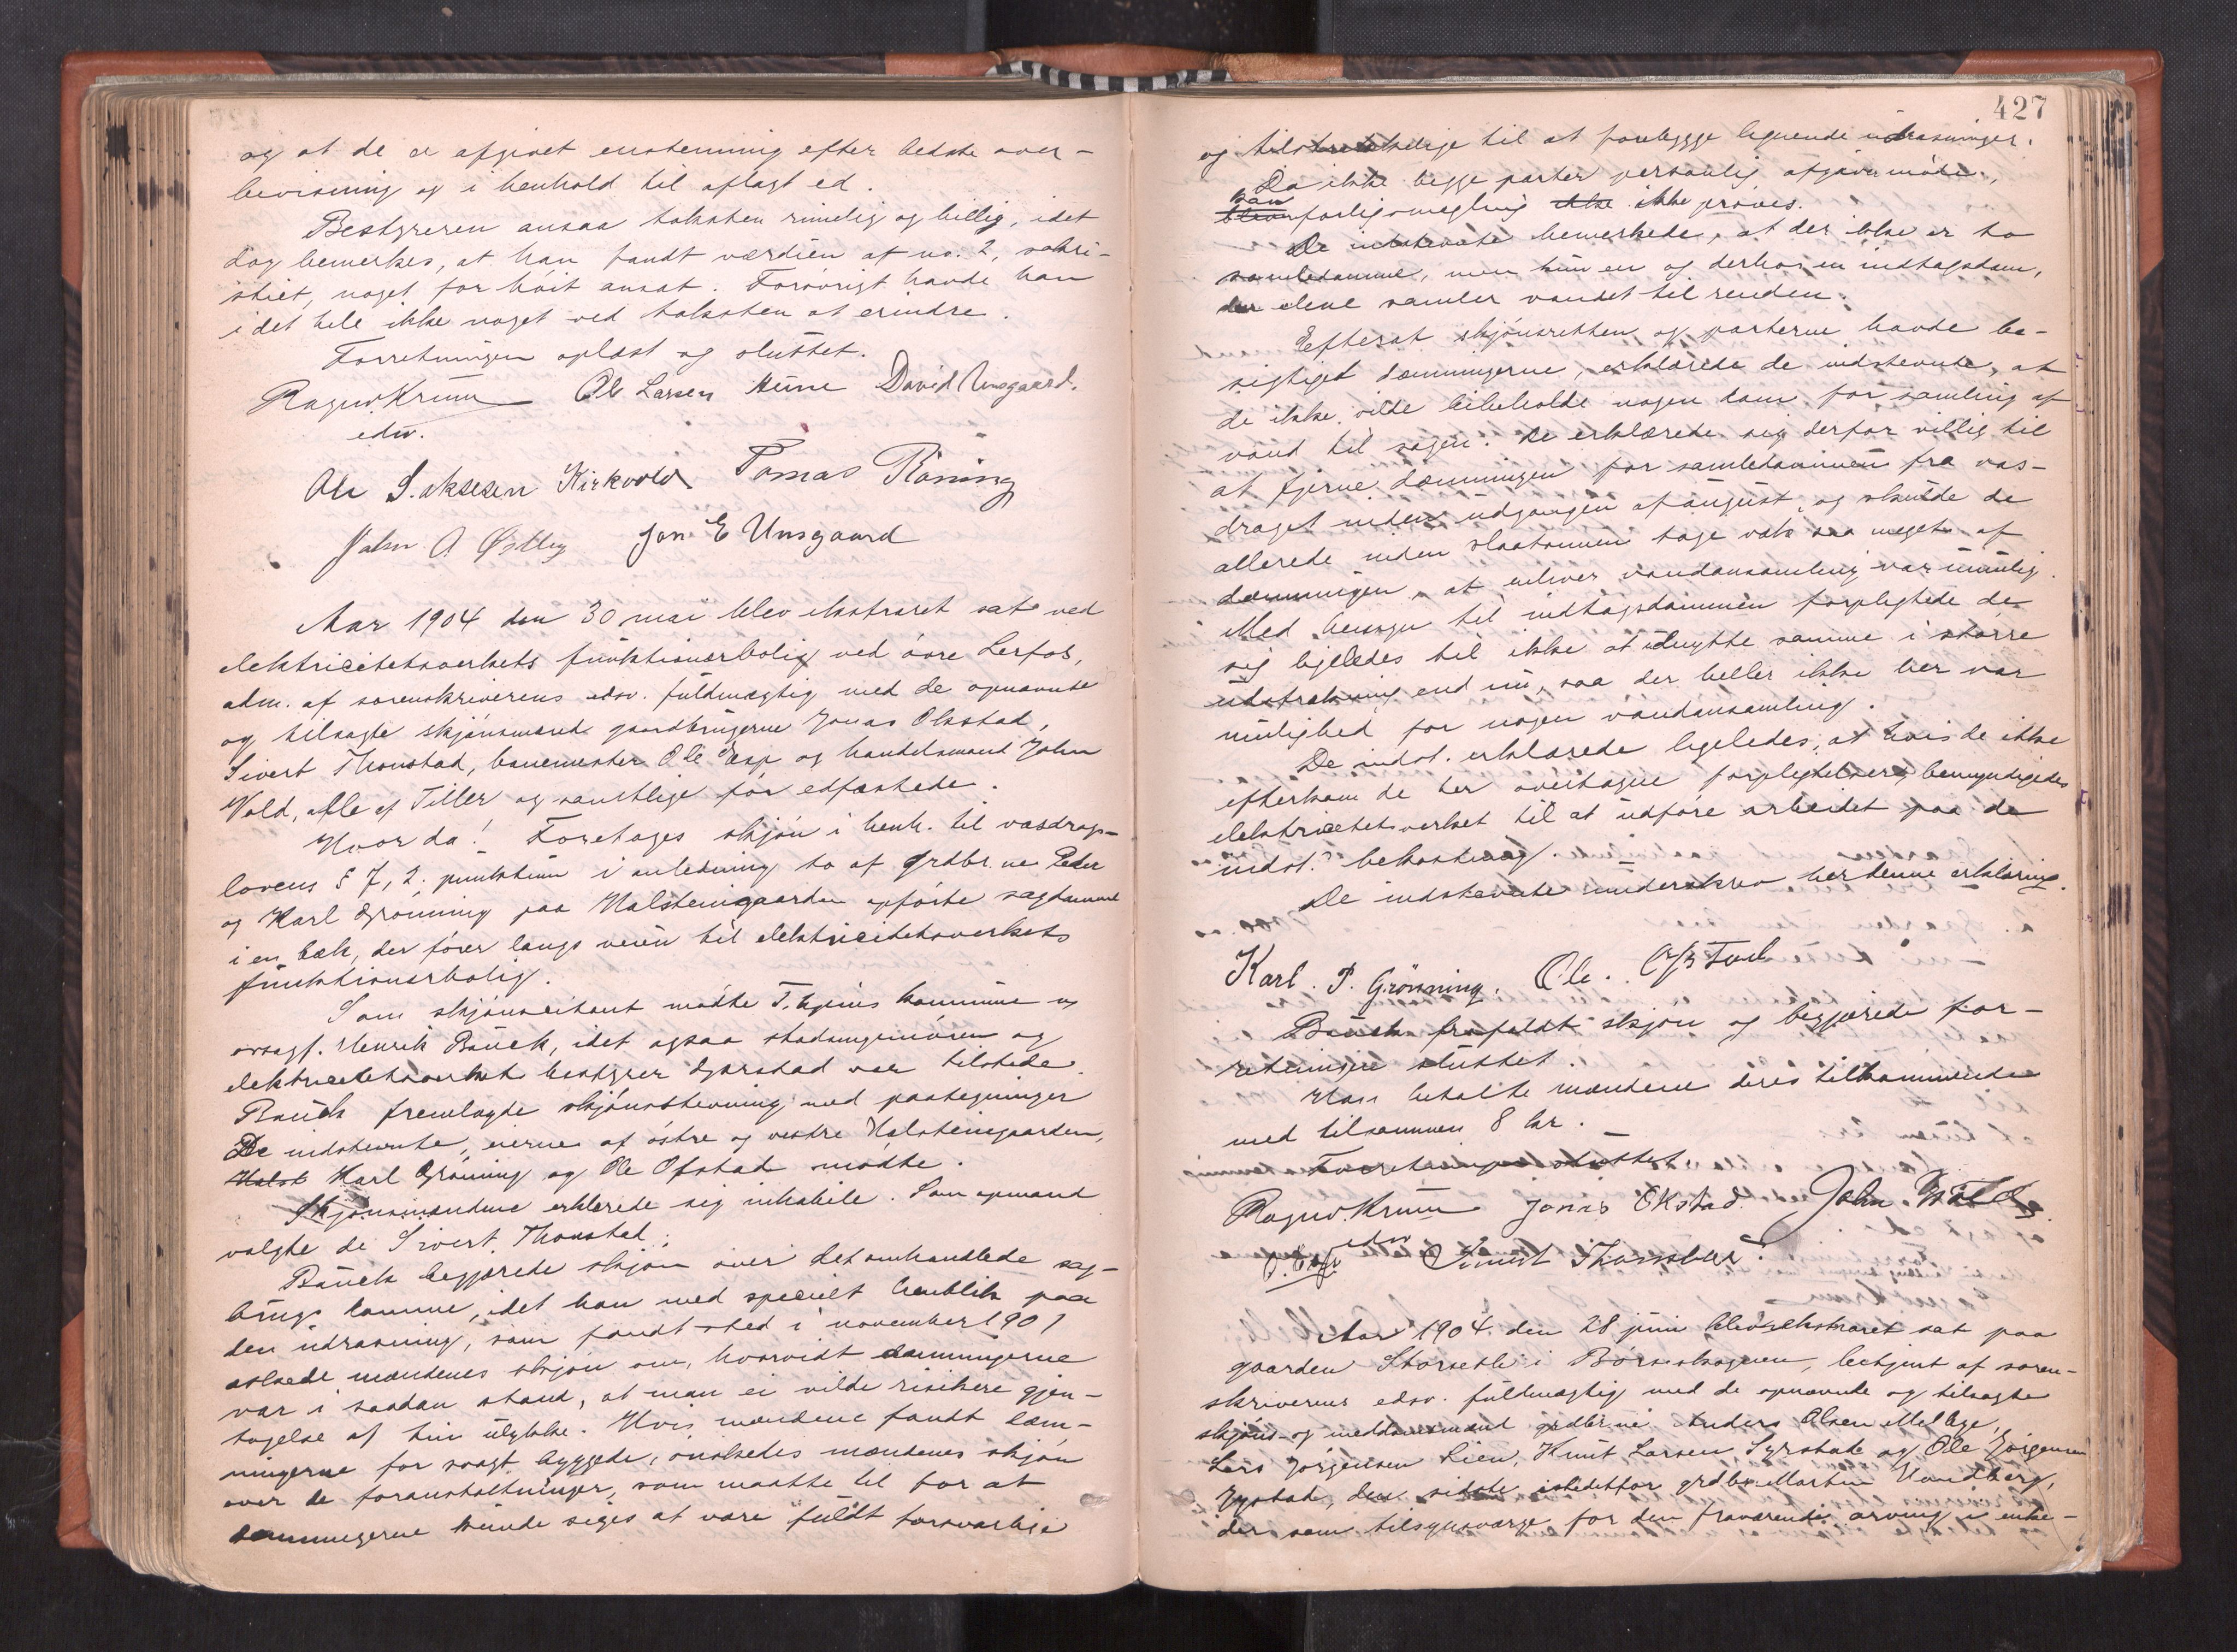 og at de er afgivet enstemmig efter bedste over-
bevisning og i henhold til aflagt ed.
Bestyreren ansaa taksten rimelig og billig, idet
dog bemerkes, at han fandt værdien af no. 2, sekri-
stiet, noget for høit ansat. Forøvrigt havde han
i det hele ikke noget ved taksten at erindre.
Forretningen oplæst og sluttet.
Ragnv. Krum Ole Larsen Stene David Unsgaard.
edsv.
Ole Saksesen Kirkvold Tomas Röning
John A Østby Jon E Unsgaard
Aar 1904 den 30 mai blev ekstraret sat ved
elektricitetsverkets funktionærbolig ved øvre Lerfos,
adm. af sorenskriverens edsv. fuldmægtig med de opnævnte
og tilsagte skjønsmænd gaardbrugerne Jonas Okstad,
Sivert Thonstad, banemester Ole Esp og handelsmand John
Wold, alle af Tiller og samtlige før edfæstede.
Hvor da! Foretages skjøn i henh. til vasdrags-
lovens § 7, 2. punktum i anledning to af grdbr.ne Peder
og Karl Grønning paa Halsteingaarden opførte sagdamme
i en bæk, der fører langs veien til elektricitetsverkets
funktionærbolig.
Som skjønscitant mødte T.hjems kommune v
orsagf. Henrik Bauck, idet ogsaa stadsingeniøren og
elektricitetsverkets bestyrer Gjærstad var tilstede.
Bauck fremlagde skjønsstevning med paategninger
De indstevnte, eierne af østre og vestre Halsteingaarden,
Halst Karl Grønning og Ole Ofstad mødte.
Skjønsmændene erklærede sig inhabile. Som opmand
valgte de Sivert Thonstad.
Bauck begjærede skjøn over det omhandlede sag-
brugs damme, idet han med specielt henblik paa
den udrasning, som fandt sted i november 1901
æskede mændenes skjøn om, hvorvidt dæmningerne
var i saadan stand, at man ei vilde risikere gjen-
tagelse af hin ulykke. Hvis mændene fandt dæm-
ningerne for svagt byggede, ønskedes mændenes skjøn
over de foranstaltninger, som maatte til for at
dæmningerne kunde siges at være fuldt forsvarlige
427
og tilstrækkelige til at forebygge lignende udrasninger.
Da ikke begge parter personlig afgav møde,
kan
blev forligsmegling ikke ikke prøves.
De indstevnte bemerkede, at der ikke er to
samledamme, men kun en og derhos en indtagsdam,
der alene samler vandet til renden.
Efterat skjønsretten og parterne havde be-
sigtiget dæmningerne, erklærede de indstevnte, at
de ikke vilde bibeholde nogen dam for samling af
vand til sagen. De erklærede sig derfor villig til
at fjerne dæmningen for samledammen fra vas-
draget inden udgangen af august, og skulde de
allerede inden slaataannen tage væk saa meget af
dæmningen, at enhver vandansamling var umulig.
Med hensyn til indtagsdammen forpligtede de
sig ligeledes til ikke at udnytte samme i større
udstrækning end nu, saa der heller ikke her var
mulighed for nogen vandansamling.
De indst. erklærede ligeledes, at hvis de ikke
efterkom de her overtagne forpligtelser, bemyndigedes
elektricitetsverket til at udføre arbeidet paa de
indst.s bekostning.
De indstevnte underskrev her denne erklæring.
Karl. P. Grönning. Ole. Ofstad
Bauck frafaldt skjøn og begjærede for-
retningen sluttet.
Han betalte mændene deres tilkommende
med tilsammen 8 kr.
Forretningen sluttet.
Ragnv. Krum Jonas Okstad. John Wold
edsv
O. Esp. Sivert Thonstad.
Aar 1904 den 28 juni blev ekstraret sat paa
gaarden Storsetli i Børseskognen, betjent af soren-
skriverens edsv. fuldmægtig med de opnævnte og tilsagte
skjøns- og meddomsmænd grdbr.ne Anders Olsen Melbye,
Lars Jørgensen Lien, Knut Larsen Syrstad og Ole Jørgensen
Rygstad, den sidste istedetfor grdbr. Martin Hundberg,
der som tilsynsværge for den fraværende arving i enke-